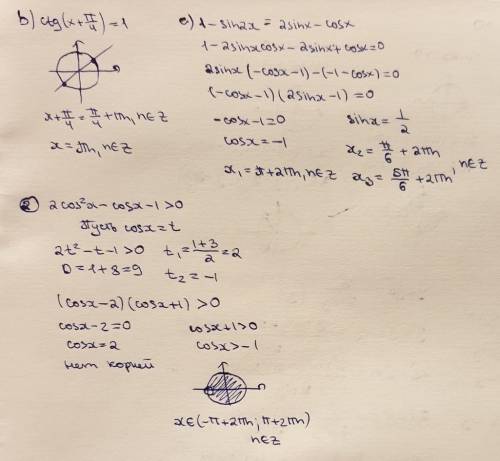 b) ctg(x+π/4)=1
x+π/4=π/4+πn, n∈Z
x=πn, n∈Z
c) 1-sin2x = 2sinx-cosx
1-2sinxcosx-2sinx+cosx=0
2sinx(-cosx-1)-(-1-cosx)=0
(-cosx-1)(2sinx-1)=0
-cosx-1=0 sinx=1/2
cosx=-1 x₂=π/6+2πn
x₁=π+2πn, n∈Z x₃=5π/6+2πn, n∈Z
② 2cos²x-cosx-1>0
Пусть cosx=t
2t²-t-1>0 t₁=(1+3)/2=2
D=1+8=9 t₂=-1
(cosx-2)(cosx+1)>0
cosx-2=0 cosx+1>0
cosx=2 cosx>-1
нет корней
x∈(-π+2πn; π+2πn)
n∈Z